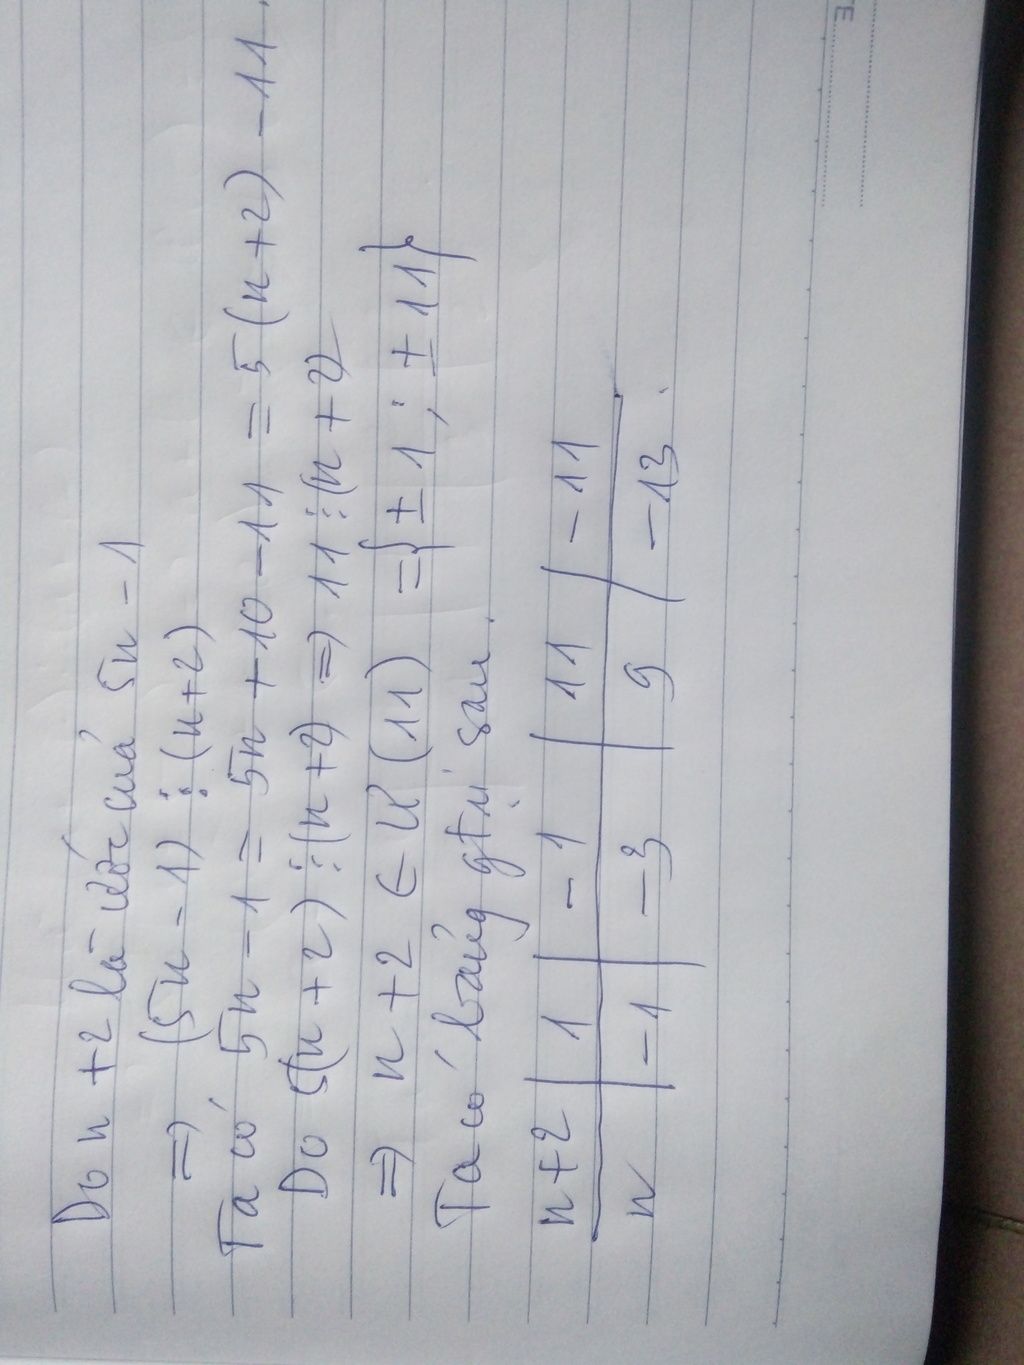 Do n + 2 là ước của 5n - 1
⇒ (5n - 1) ⋮ (n+2)
Ta có 5n - 1 = 5n + 10 - 11 = 5(n+2) - 11.
Do 5(n+2) ⋮ (n+2) ⇒ 11 ⋮ (n+2)
⇒ n + 2 ∈ Ư(11) = {±1; ±11}
Ta có bảng gtrị sau.
n+2 | 1 | -1 | 11 | -11
n | -1 | -3 | 9 | -13.